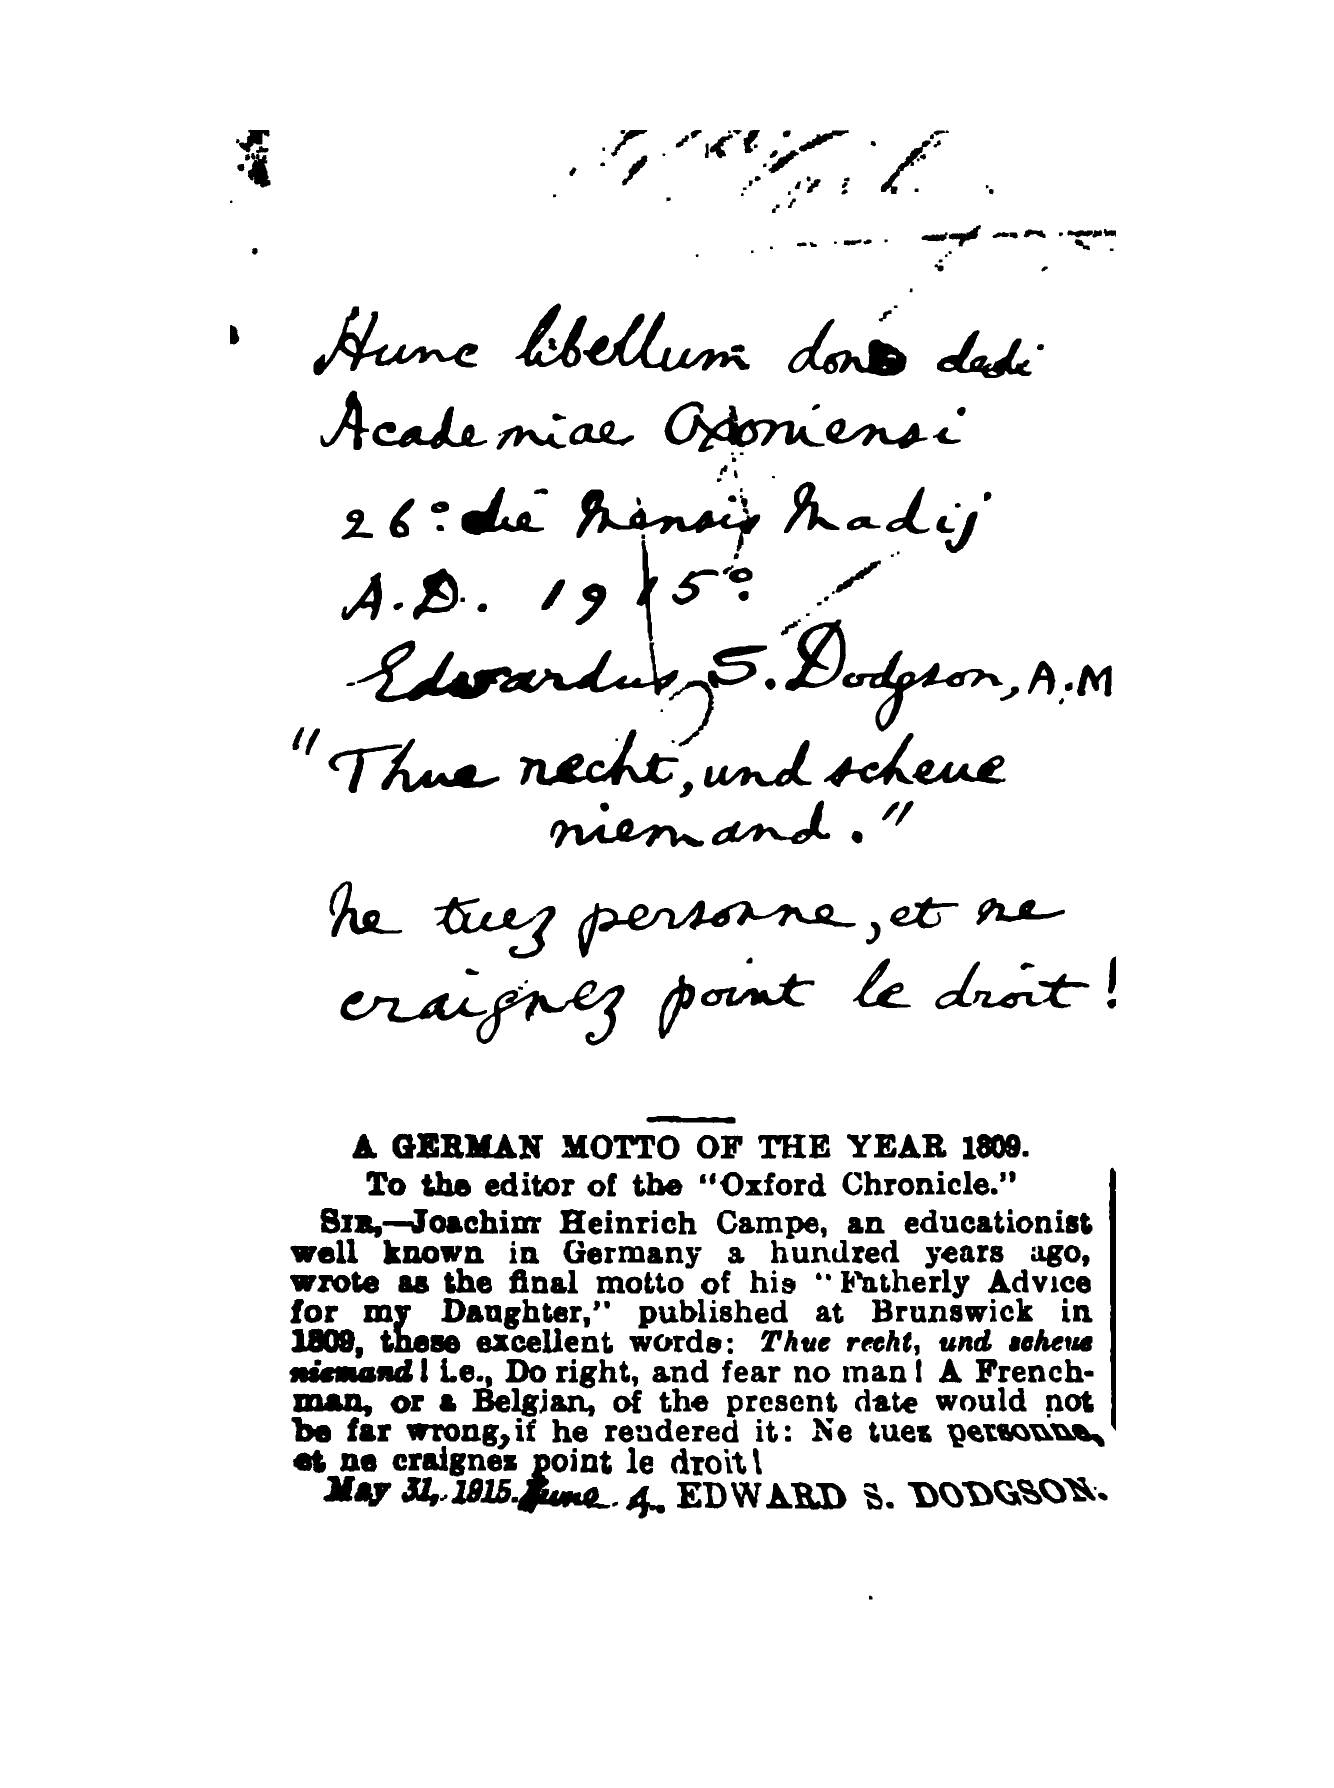 Hunc libellum dono dedi
Academiae Oxoniensi
26º: die Mensis Madij
A.D. 1915º.
Edwardus S. Dodgson, A.M
"Thue recht, und scheue
niemand."
Ne tuez personne, et ne
craignez point le droit!
A GERMAN MOTTO OF THE YEAR 1809.
To the editor of the "Oxford Chronicle."
SIR,—Joachim Heinrich Campe, an educationist
well known in Germany a hundred years ago,
wrote as the final motto of his "Fatherly Advice
for my Daughter," published at Brunswick in
1809, these excellent words: Thue recht, und scheue
niemand! i.e., Do right, and fear no man! A French-
man, or a Belgian, of the present date would not
be far wrong, if he rendered it: Ne tuez personne,
et ne craignez point le droit!
May 31, 1915. June 4. EDWARD S. DODGSON.